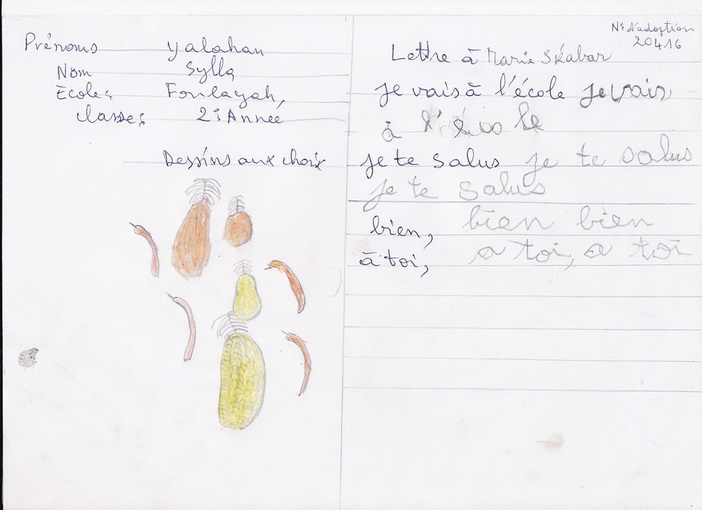 Prénoms Yalahan
Nom Sylla
Ecole: Foulayah,
classe: 2e Année
Dessins aux choix
No d'adoption
20416
Lettre à Marie Skabar
je vais à l'école je vais
à l'école
je te salus je te salus
je te salus
bien, bien bien
à toi, a toi, a toi